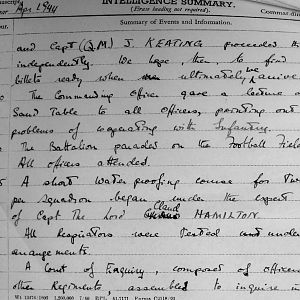 INTELLIGENCE SUMMARY.
(Erase heading not required).
Apr. 1944
Summary of Events and Information.
and Capt (Q.M) J. KEATING proceeded
independently. We hope then to find
billets ready when we ultimately arrive
The Commanding Officer gave a lecture
Sand Table to all officers, pointing out
problems of cooperating with Infantry.
The Battalion paraded on the Football Field
All officers attended.
A short waterproofing course for two
per squadron began under the expert
of Capt The Lord Claud HAMILTON.
All Respirators were tested under
arrangements.
A Court of Enquiry, composed of officers
other Regiments, assembled to inquire in